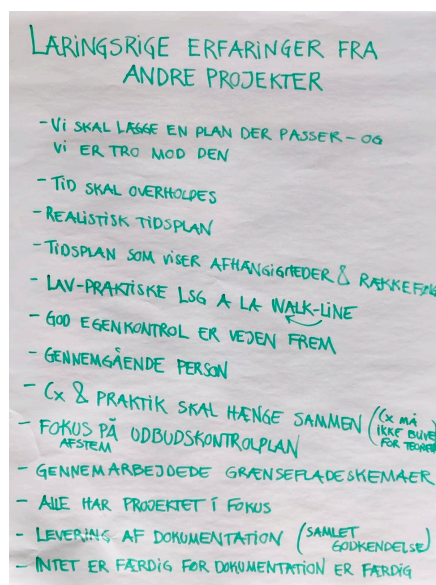 LÆRINGSRIGE ERFARINGER FRA
ANDRE PROJEKTER
- Vi SKAL LÆGGE EN PLAN DER PASSER - OG
Vi ER TRO MOD DEN
- TiD SKAL OVERHOLDES
- REALISTISK TIDSPLAN
- TIDSPLAN SOM VISER AFHÆNGIGHEDER & RÆKKEFØLG
- LAV-PRAKTISKE LSG A LA WALK-LINE
- GOD EGENKONTROL ER VEJEN FREM
- GENNEMGÅENDE PERSON
- Cx & PRAKTIK SKAL HÆNGE SAMMEN (Cx MÅ
IKKE BLIVE
FOR TEORE
- FOKUS PÅ UDBUDSKONTROLPLAN
AFSTEM
- GENNEMARBEJDEDE GRÆNSEFLADESKEMAER
- ALLE HAR PROJEKTET i FOKUS
- LEVERING AF DOKUMENTATION (SAMLET
GODKENDELSE)
- INTET ER FÆRDIG FØR DOKUMENTATION ER FÆRDIG